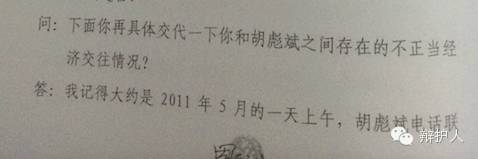 问：下面你再具体交代一下你和胡彪斌之间存在的不正当经
济交往情况？
答：我记得大约是 2011 年 5 月的一天上午，胡彪斌电话联
辩护人